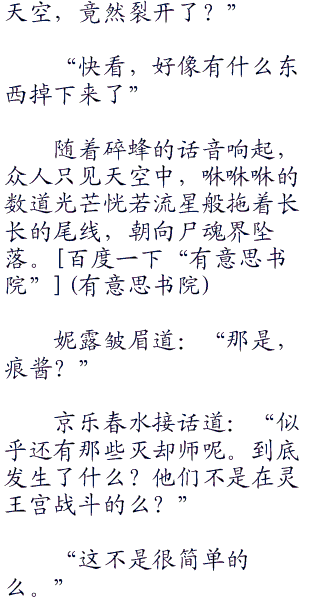 天空，竟然裂开了？”
“快看，好像有什么东
西掉下来了”
随着碎蜂的话音响起，
众人只见天空中，咻咻咻的
数道光芒恍若流星般拖着长
长的尾线，朝向尸魂界坠
落。[百度一下“有意思书
院”] (有意思书院)
妮露皱眉道：“那是，
痕酱？”
京乐春水接话道：“似
乎还有那些灭却师呢。到底
发生了什么？他们不是在灵
王宫战斗的么？”
“这不是很简单的
么。”